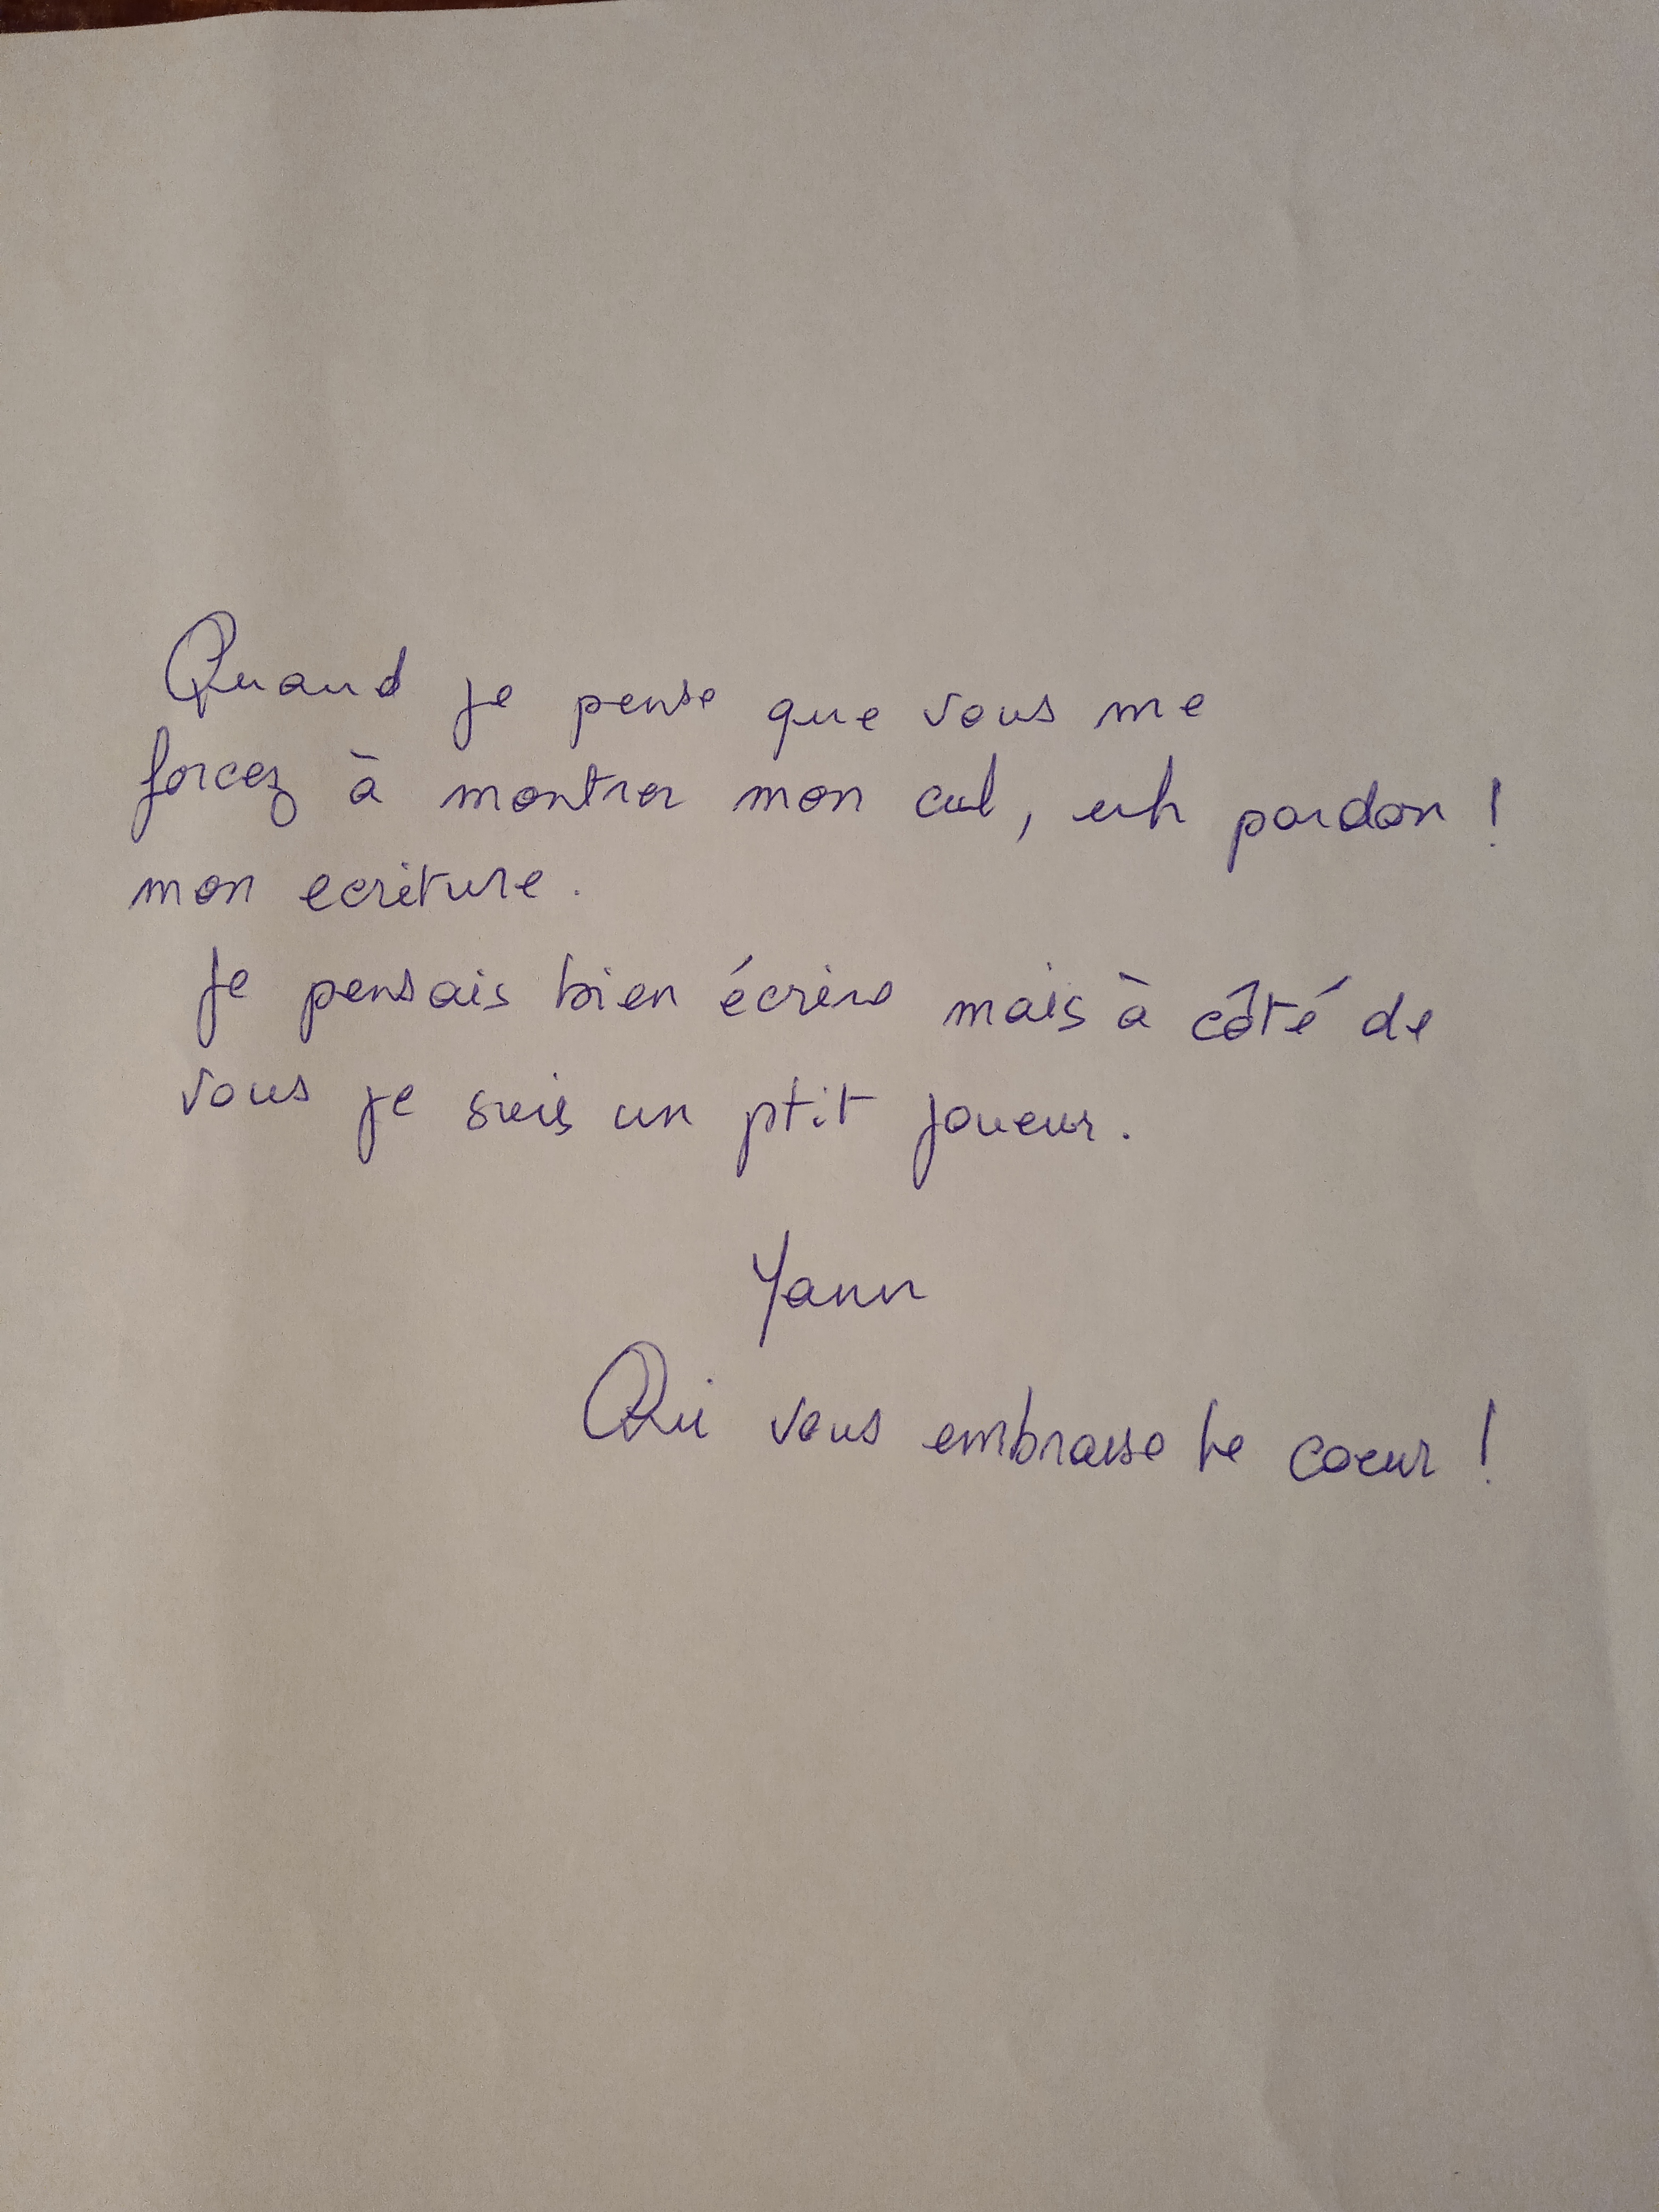 Quand je pense que vous me
forcez à montrer mon cul, euh pardon !
mon ecriture.
Je pensais bien écrire mais à côté de
vous je suis un ptit joueur.
Yann
Qui vous embrase le coeur !